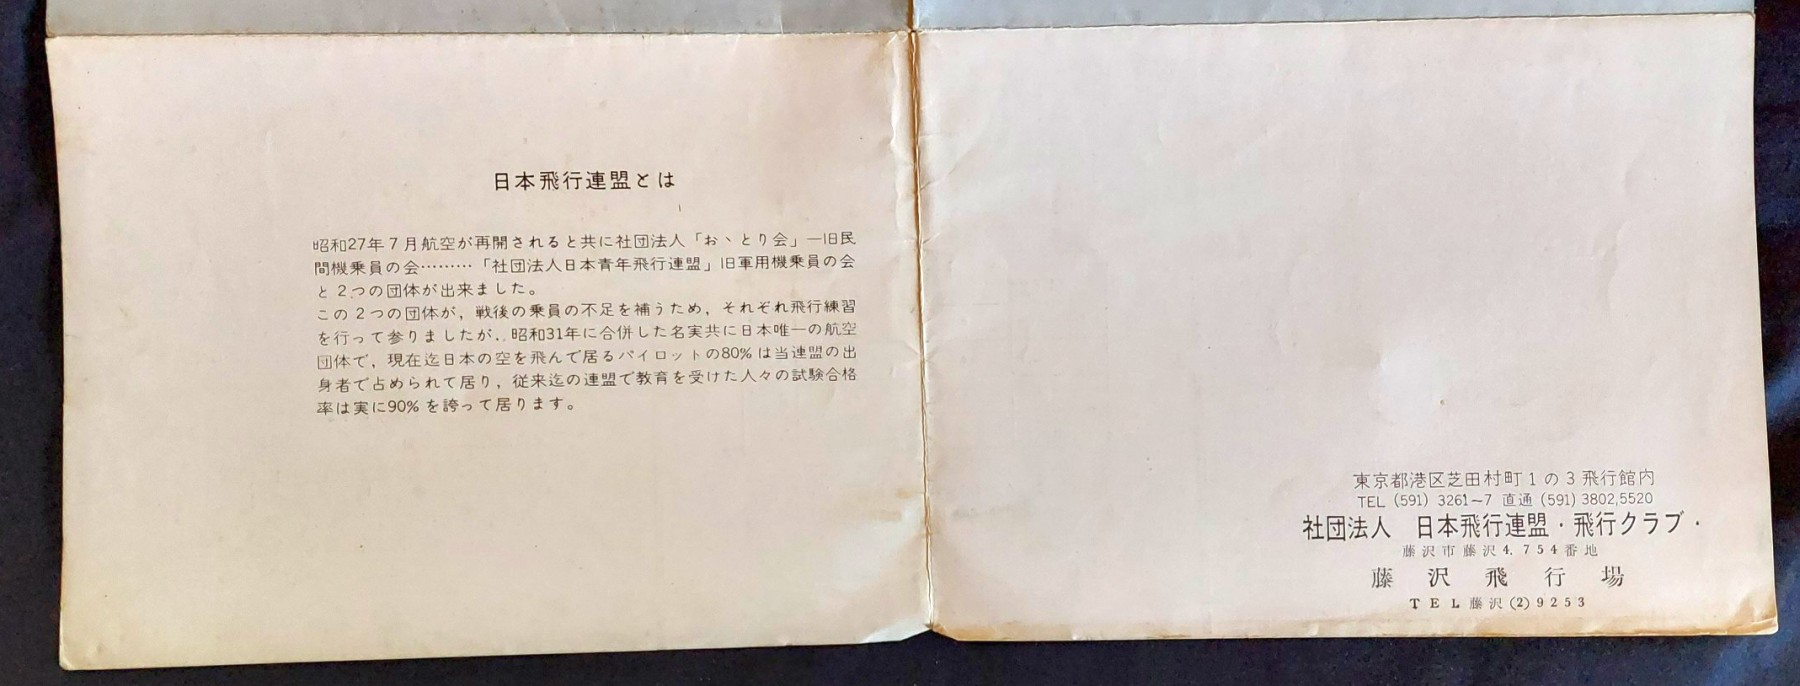 日本飛行連盟とは
昭和27年7月航空が再開されると共に社団法人「おゝとり会」―旧民
間機乗員の会………「社団法人日本青年飛行連盟」旧軍用機乗員の会
と2つの団体が出来ました。
この2つの団体が，戦後の乗員の不足を補うため，それぞれ飛行練習
を行って参りましたが，昭和31年に合併した名実共に日本唯一の航空
団体で，現在迄日本の空を飛んで居るパイロットの80%は当連盟の出
身者で占められて居り，従来迄の連盟で教育を受けた人々の試験合格
率は実に90%を誇って居ります。
東京都港区芝田村町1の3飛行館内
TEL (591) 3261~7 直通 (591) 3802,5520
社団法人 日本飛行連盟・飛行クラブ・
藤沢市藤沢4,754番地
藤沢飛行場
TEL藤沢(2)9253